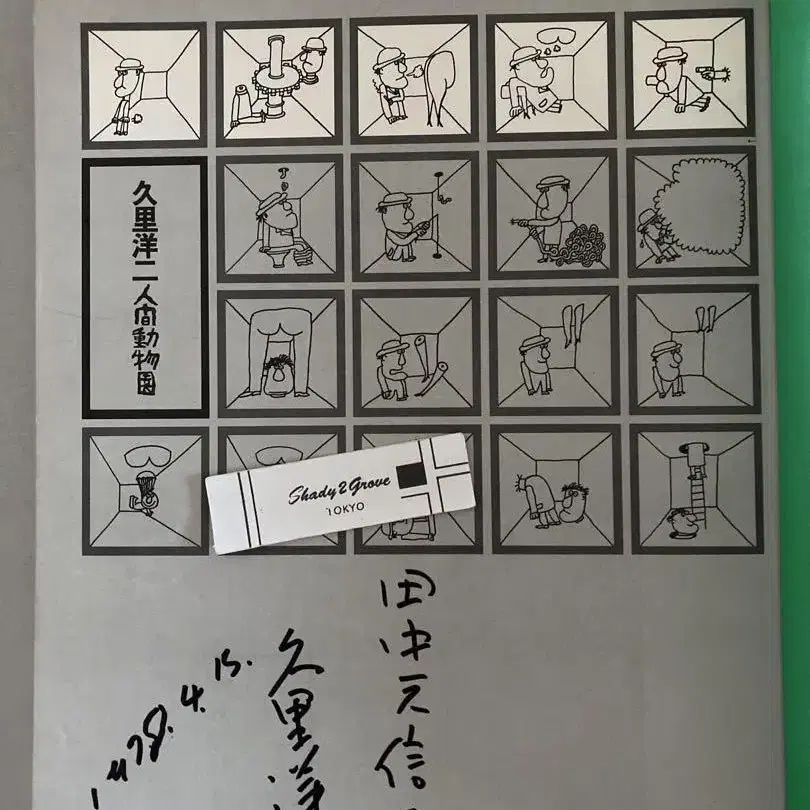 久里洋二人間動物園
Shady2Grove
TOKYO
田中天信
久里洋
1978.4.15.